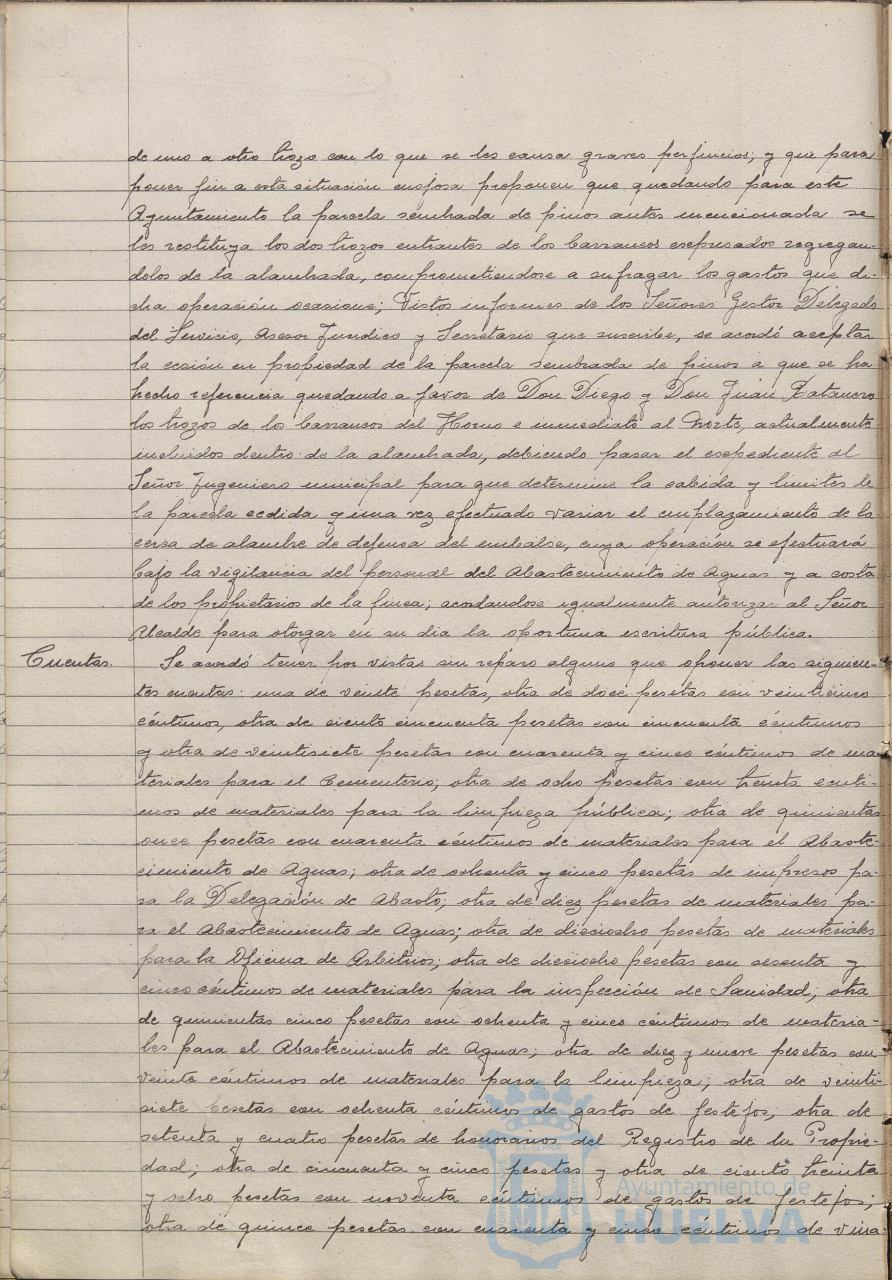 de uno a otro trozo con lo que se les causa graves perjuicios; y que para
poner fin a esta situación enojosa proponen que quedando para este
Ayuntamiento la parcela sembrada de pinos antes mencionada se
les restituya los dos trozos entrantes de los barrancos expresados regregan-
dolos de la alambrada, comprometiendose a sufragar los gastos que di-
cha operación ocasione; Vistos informes de los Señores Gestor Delegado
del Servicio, Asesor Juridico y Secretario que suscribe, se acordó aceptar
la cesión en propiedad de la parcela sembrada de pinos a que se ha
hecho referencia quedando a favor de Don Diego y Don Juan Batanero
los trozos de los barrancos del Horno e inmediato al Norte, actualmente
incluidos dentro de la alambrada, debiendo pasar el expediente al
Señor Ingeniero municipal para que determine la cabida y limites de
la parcela cedida y una vez efectuado variar el emplazamiento de la
cerca de alambre de defensa del embalse, cuya operación se efectuará
bajo la vigilancia del personal del Abastecimiento de Aguas y a costa
de los propietarios de la finca; acordandose igualmente autorizar al Señor
Alcalde para otorgar en su dia la oportuna escritura pública.
Cuentas. Se acordó tener por vistas sin reparo alguno que oponer las siguien-
tes cuentas: una de veinte pesetas, otra de doce pesetas con veinticinco
céntimos, otra de ciento cincuenta pesetas con cincuenta céntimos
y otra de veintisiete pesetas con cuarenta y cinco céntimos de ma
teriales para el Cementerio; otra de ocho pesetas con treinta centi-
mos de materiales para la limpieza pública; otra de quinientas
once pesetas con cuarenta céntimos de materiales para el Abaste-
cimiento de Aguas; otra de ochenta y cinco pesetas de impresos pa-
ra la Delegación de Abasto; otra de diez pesetas de materiales pa-
ra el Abastecimiento de Aguas; otra de dieciocho pesetas de materiales
para la Oficina de Arbitrios; otra de dieciocho pesetas con sesenta y
cinco céntimos de materiales para la inspección de Sanidad; otra
de quinientas cinco pesetas con ochenta y cinco céntimos de materia-
les para el Abastecimiento de Aguas; otra de diez y nueve pesetas con
veinte céntimos de materiales para la limpieza; otra de veinti-
siete pesetas con ochenta céntimos de gastos de festejos, otra de
setenta y cuatro pesetas de honorarios del Registro de la Propie-
dad; otra de cincuenta y cinco pesetas y otra de ciento treinta
y ocho pesetas con noventa céntimos de gastos de festejos;
otra de quince pesetas con cuarenta y cinco céntimos de vina
Ayuntamiento de
HUELVA